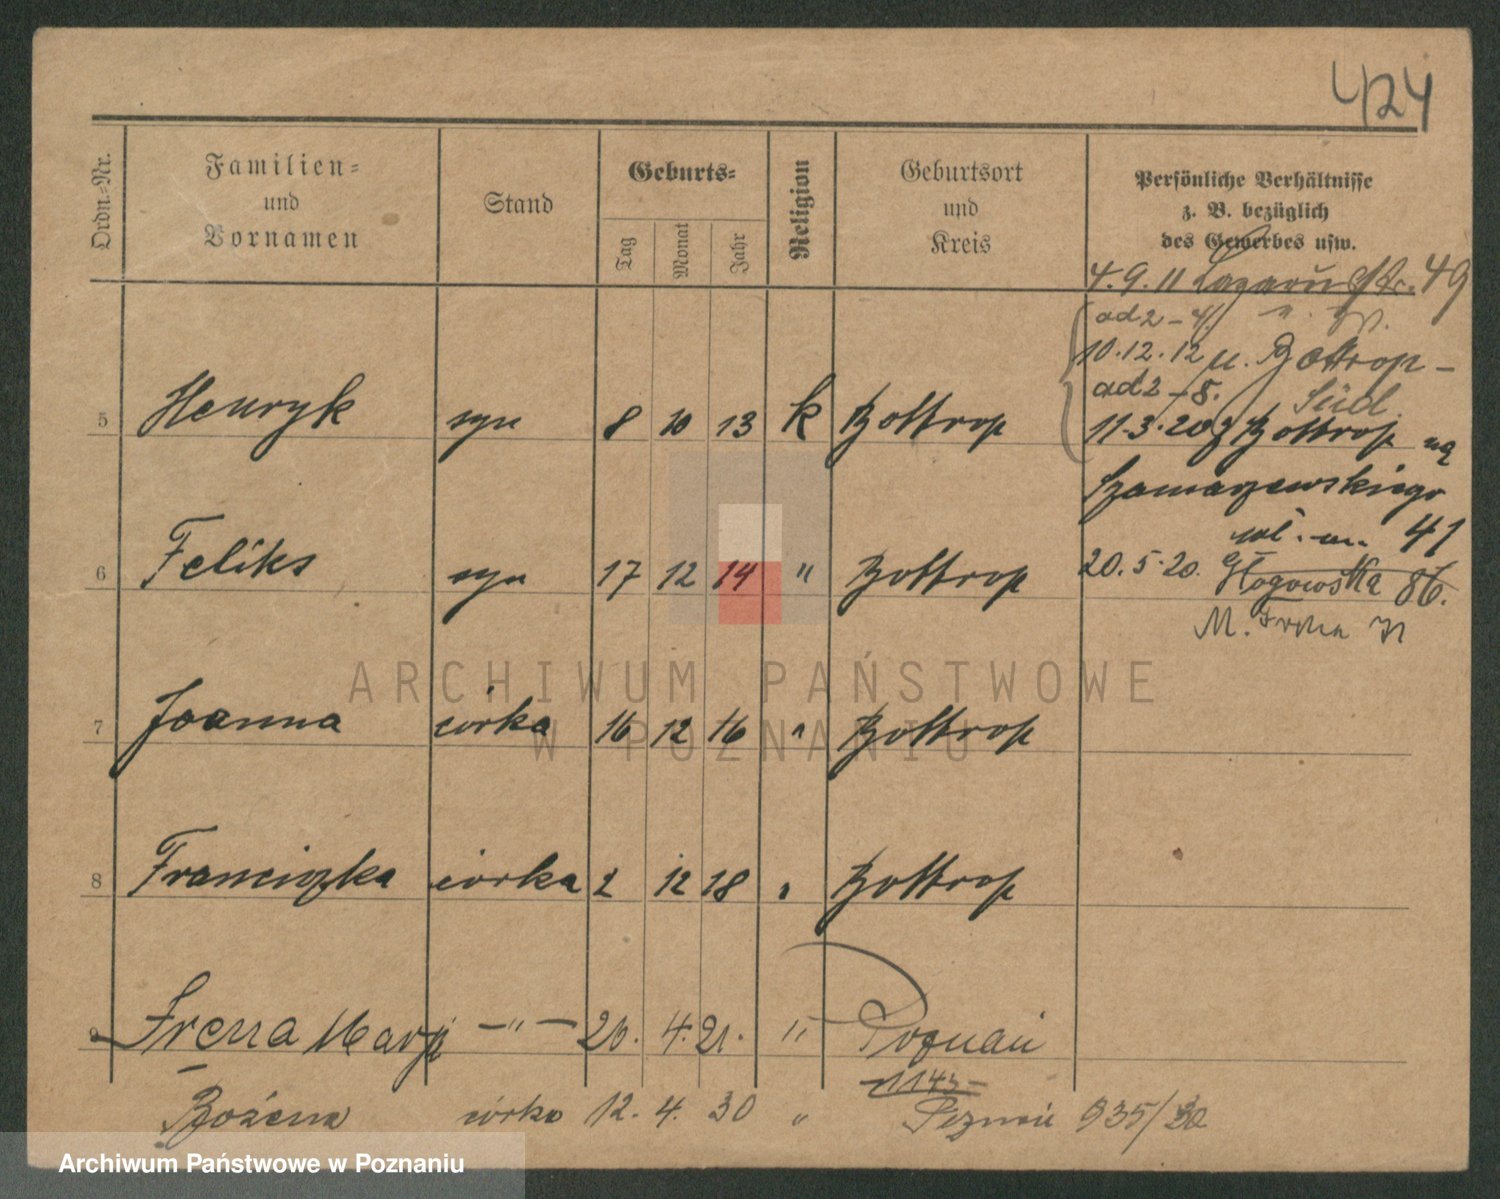 424
Ordn.-Nr.
Familien-
und
Vornamen
Stand
Geburts-
Tag
Monat
Jahr
Religion
Geburtsort
und
Kreis
Persönliche Verhältnisse
z. B. bezüglich
des Gewerbes usw.
4.9.11 Lazarus Str. 49
ad 2-4.
10.12.12 u. Bottrop-
ad 2-8. Süd.
11.3.20 z Bottrop na
Szamarzewskiego
wł. m. 41
20.5.20. Głogowska 86.
M. Irena
5 Henryk syn 8 10 13 k Bottrop
6 Feliks syn 17 12 14 " Bottrop
7 Joanna córka 16 12 16 " Bottrop
8 Franciszka córka 2 12 18 " Bottrop
9 Irena Marja -"- 20. 4. 21. " Poznań
-1143-
Bożena córka 12. 4. 30 " Poznań 935/30
ARCHIWUM PAŃSTWOWE
W POZNANIU
Archiwum Państwowe w Poznaniu